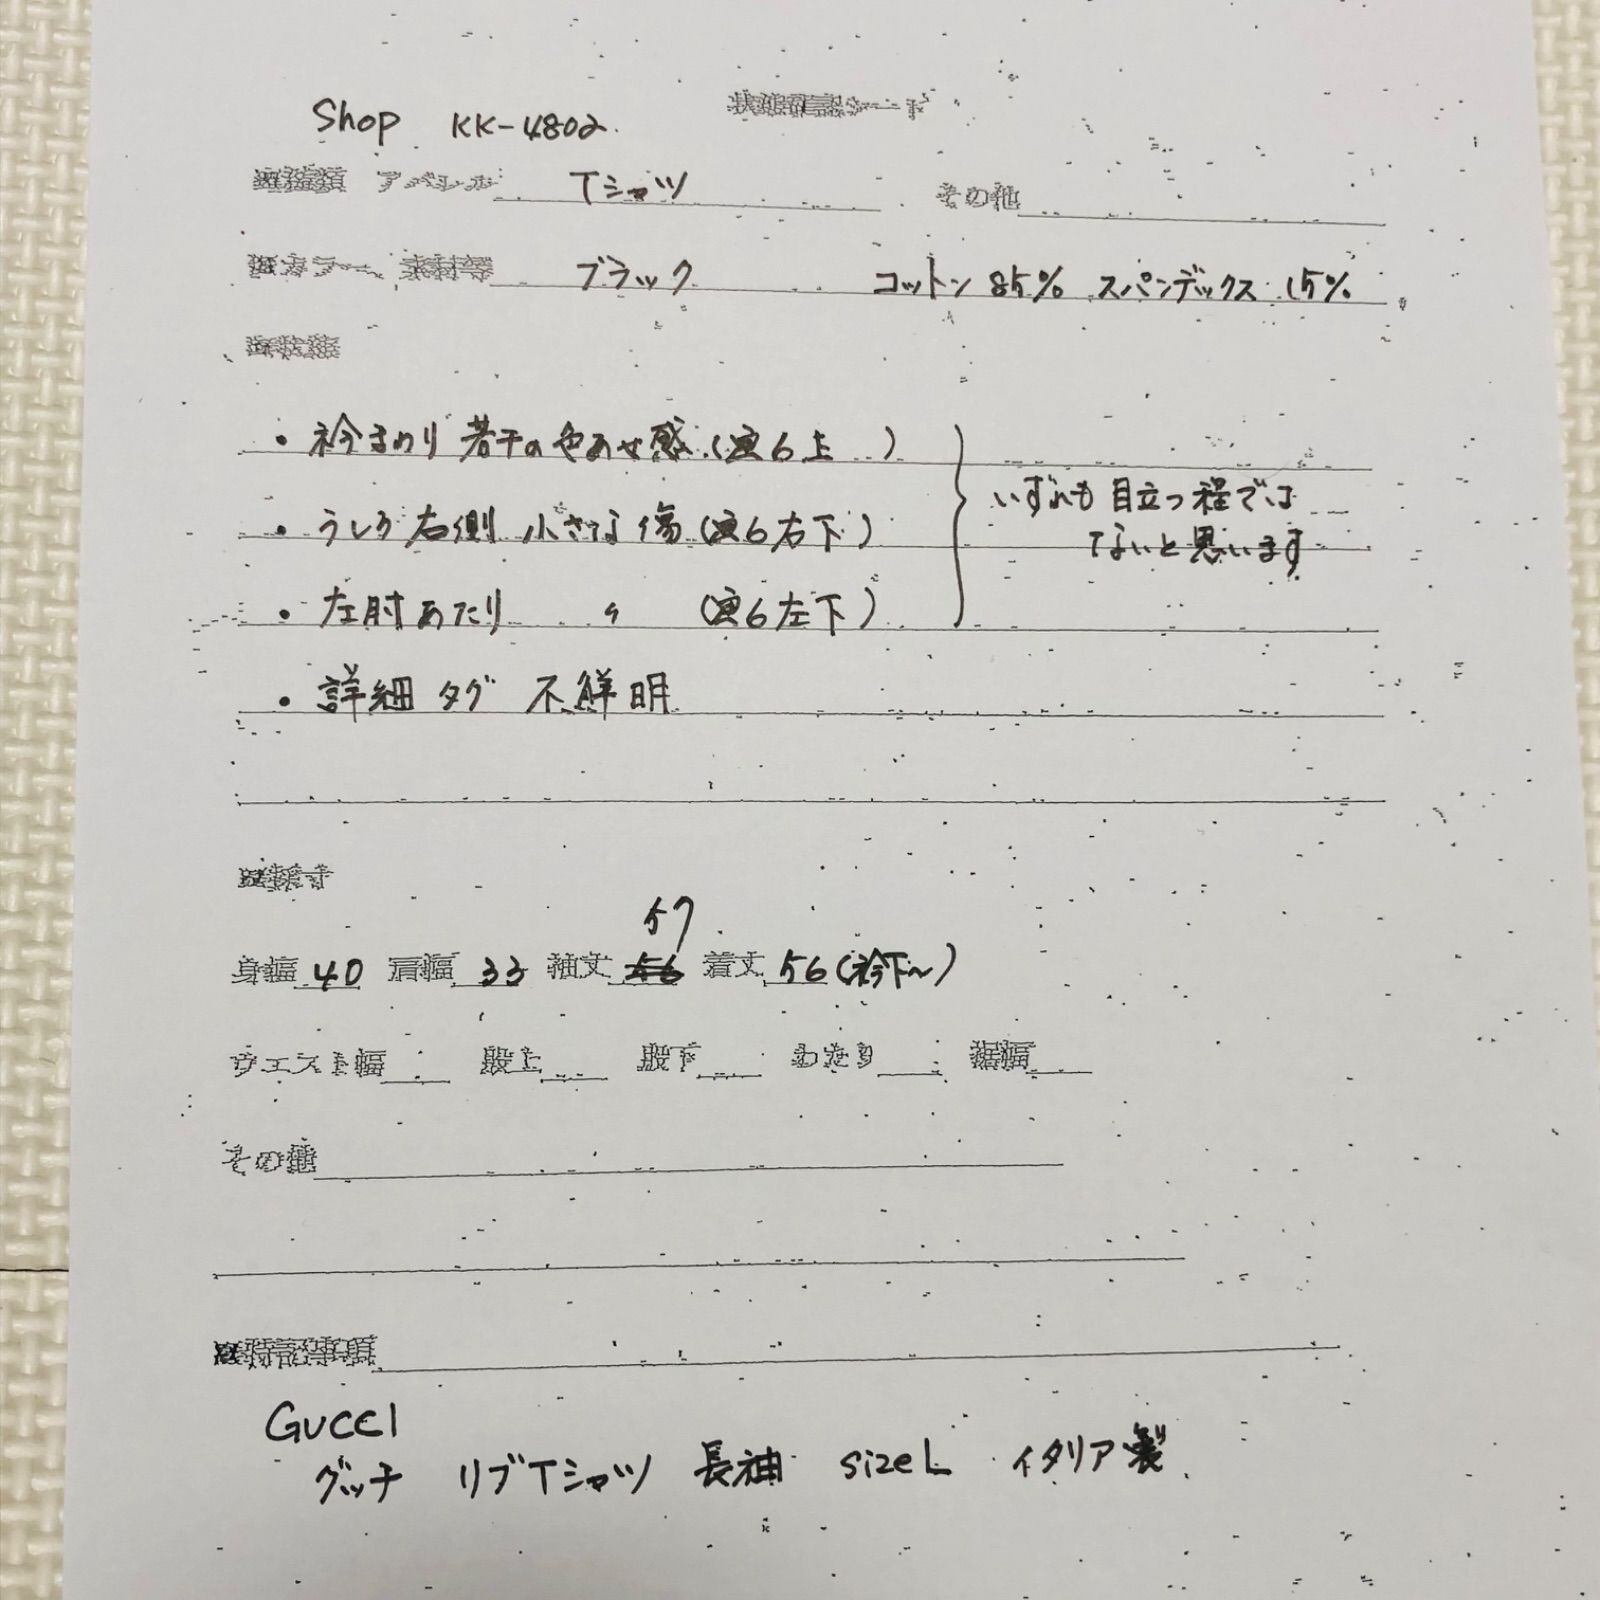 Shop KK-4802
状態確認シート
種類 アパレル Tシャツ その他
カラー、素材等 ブラック コットン 85% スパンデックス 15%
状態
・衿まわり 若干の色あせ感 (画6上)
・うしろ右側 小さな傷 (画6右下)
いずれも目立つ程では
ないと思います
・左肘あたり 〃 (画6左下)
・詳細タグ 不鮮明
採寸
57
身幅 40 肩幅 33 袖丈 56 着丈 56 (衿下〜)
ウエスト幅 股上 股下 わたり 裾幅
その他
特記事項
GUCCI
グッチ リブTシャツ 長袖 sizeL イタリア製